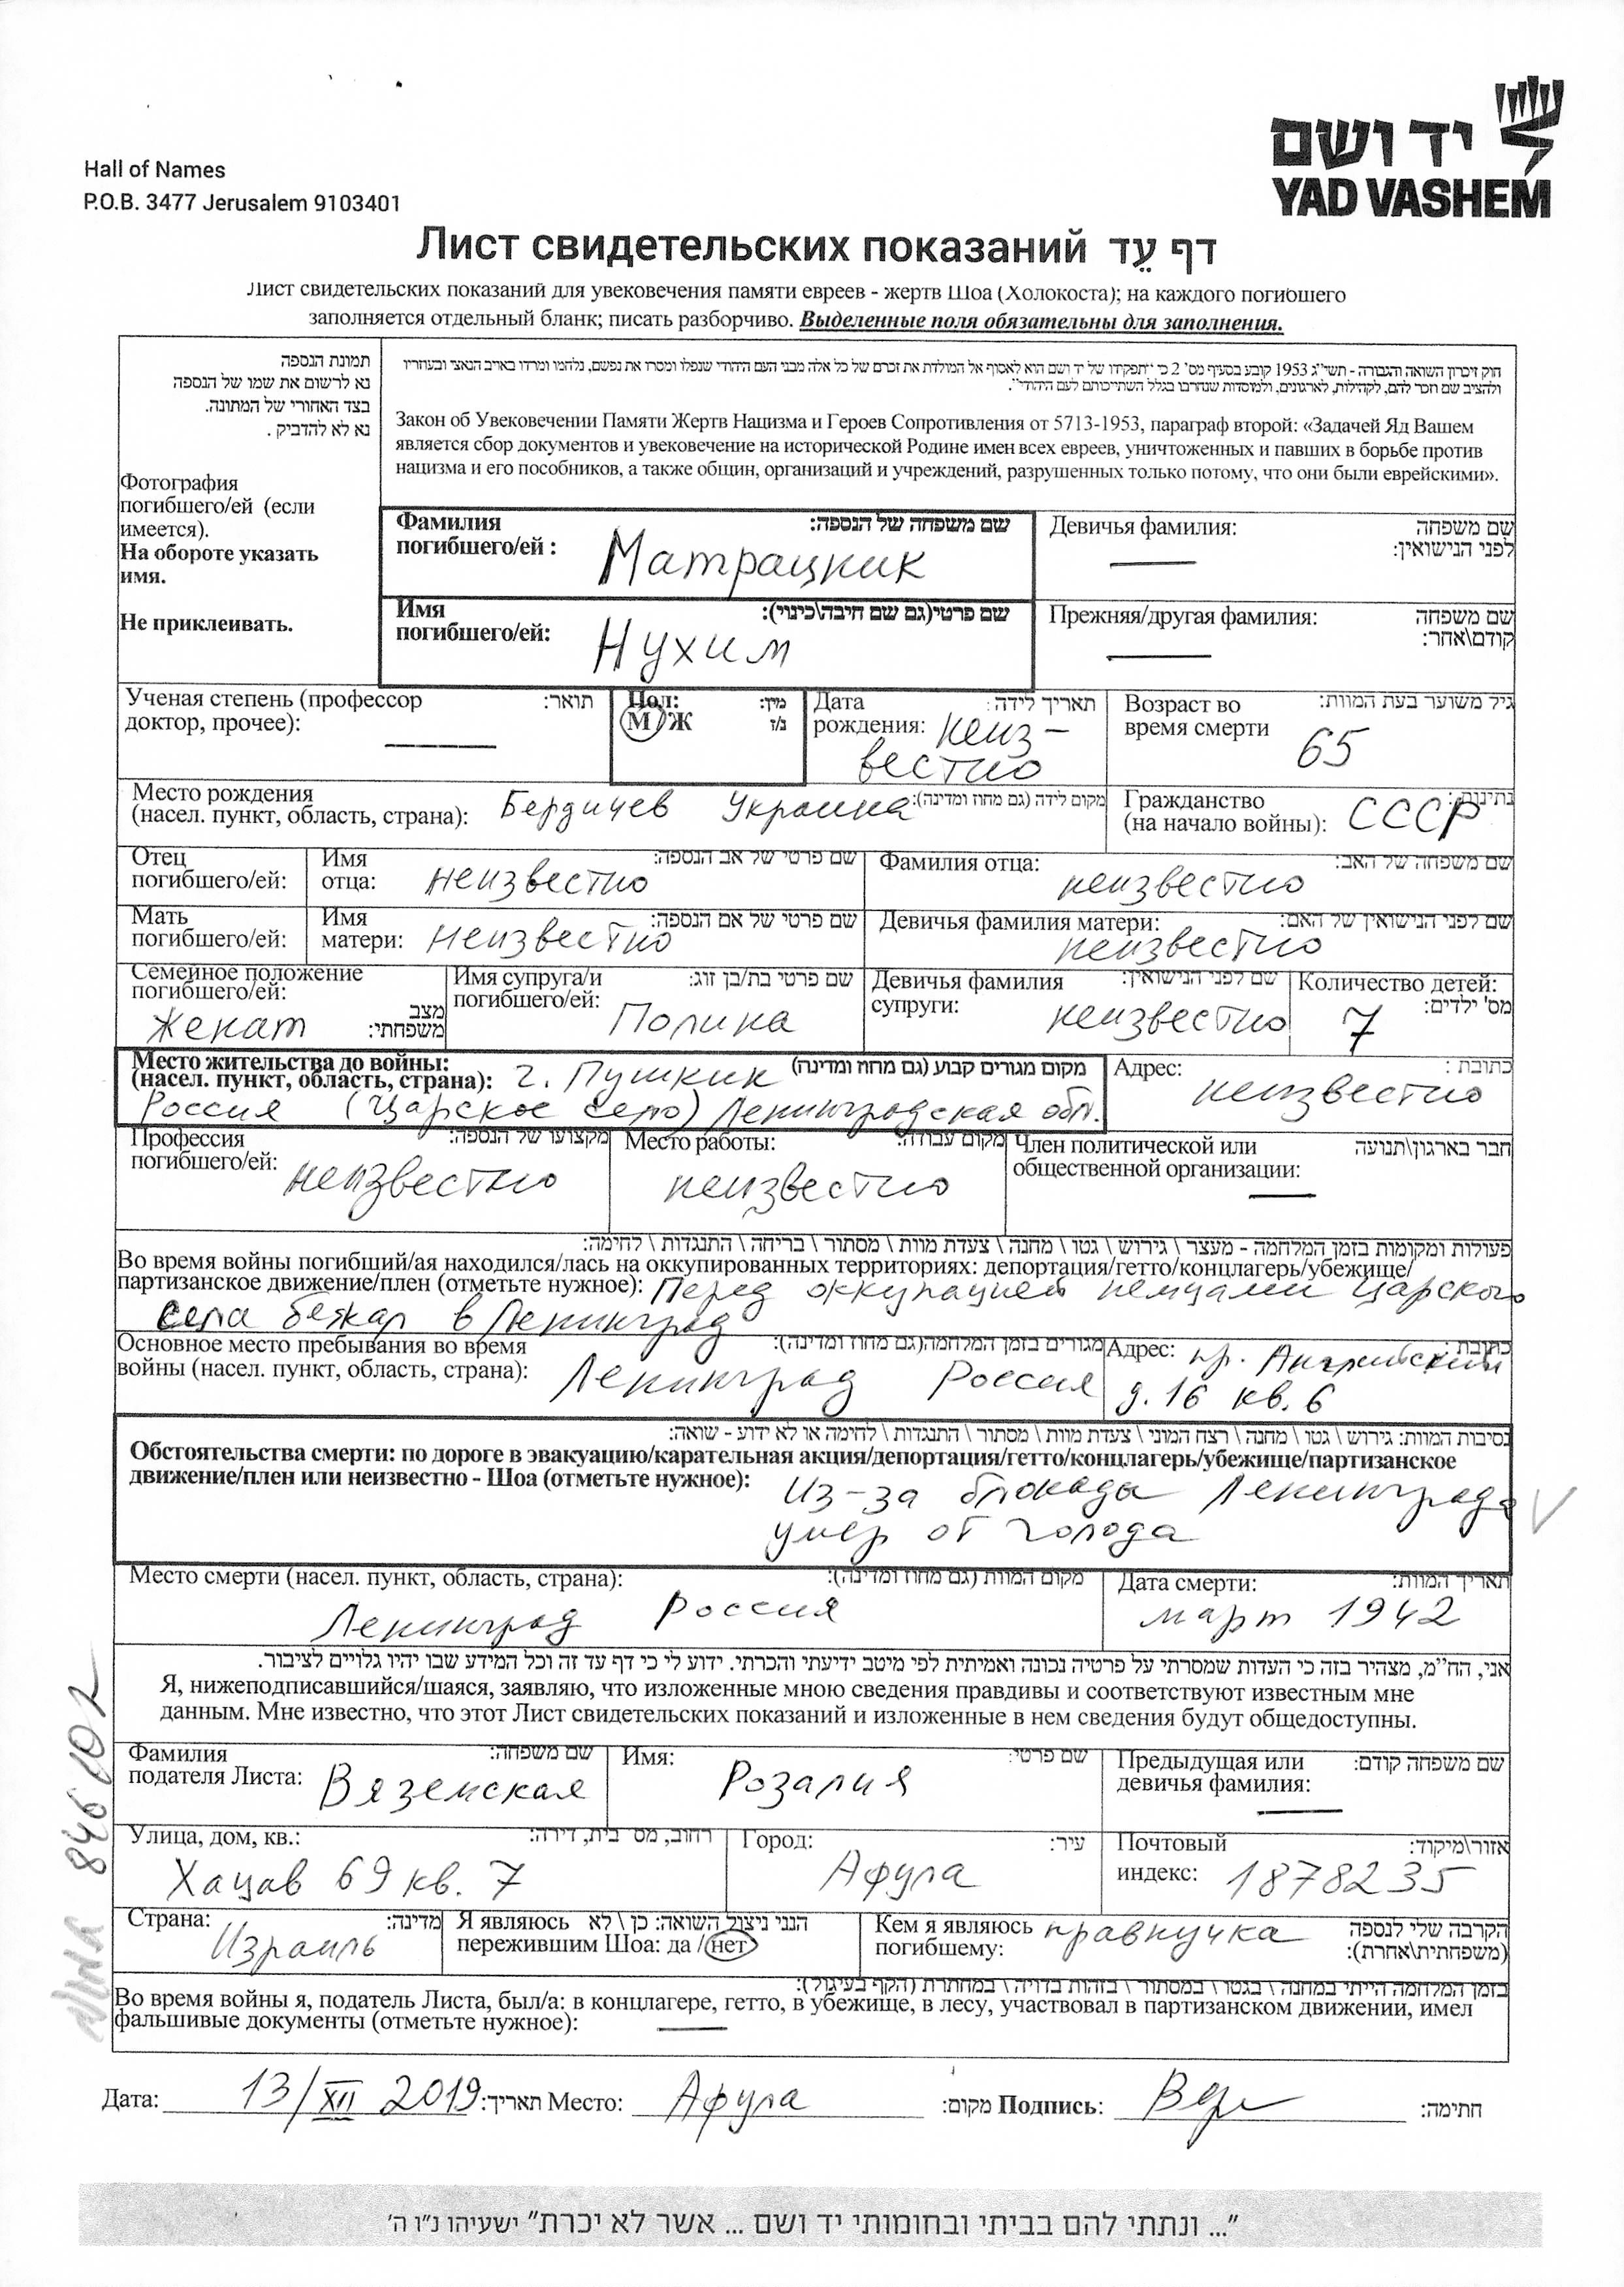 יד ושם
YAD VASHEM
Hall of Names
P.O.B. 3477 Jerusalem 9103401
Лист свидетельских показаний דף עֵד
Лист свидетельских показаний для увековечения памяти евреев - жертв Шоа (Холокоста); на каждого погибшего
заполняется отдельный бланк; писать разборчиво. Выделенные поля обязательны для заполнения.
תמונת הנספה
נא לרשום את שמו של הנספה
בצד האחורי של המתונה.
נא לא להדביק .
Фотография
погибшего/ей (если
имеется).
На обороте указать
имя.
Не приклеивать.
חוק זיכרון השואה והגבורה - תשי"ג 1953 קובע בסעיף מס' 2 כי "תפקידו של יד ושם הוא לאסוף אל המולדת את זכרם של כל אלה מבני העם היהודי שנפלו ומסרו את נפשם, נלחמו ומרדו באויב הנאצי ובעוזריו
ולהציב שם וזכר להם, לקהילות, לארגונים, ולמוסדות שנחרבו בגלל השתייכותם לעם היהודי".
Закон об Увековечении Памяти Жертв Нацизма и Героев Сопротивления от 5713-1953, параграф второй: «Задачей Яд Вашем
является сбор документов и увековечение на исторической Родине имен всех евреев, уничтоженных и павших в борьбе против
нацизма и его пособников, а также общин, организаций и учреждений, разрушенных только потому, что они были еврейскими».
Фамилия שם משפחה של הנספה:
погибшего/ей : Матрацник
Девичья фамилия: שם משפחה
לפני הנישואין:
—
Имя שם פרטי(גם שם חיבה\כינוי):
погибшего/ей: Нухим
Прежняя/другая фамилия: שם משפחה
קודם\אחר:
—
Ученая степень (профессор תואר:
доктор, прочее): —
Пол: מין:
М/Ж ז/נ
Дата תאריך לידה:
рождения: неиз-
вестно
Возраст во גיל משוער בעת המוות:
время смерти 65
Место рождения מקום לידה (גם מחוז ומדינה):
(насел. пункт, область, страна): Бердичев Украина
Гражданство נתינות:
(на начало войны): СССР
Отец
погибшего/ей:
Имя שם פרטי של אב הנספה:
отца: неизвестно
Фамилия отца: שם משפחה של האב:
неизвестно
Мать
погибшего/ей:
Имя שם פרטי של אם הנספה:
матери: неизвестно
Девичья фамилия матери: שם לפני הנישואין של האם:
неизвестно
Семейное положение
погибшего/ей: מצב
משפחתי: Женат
Имя супруга/и שם פרטי בת/בן זוג:
погибшего/ей: Полина
Девичья фамилия שם לפני הנישואין:
супруги: неизвестно
Количество детей:
מס' ילדים: 7
Место жительства до войны: מקום מגורים קבוע (גם מחוז ומדינה)
(насел. пункт, область, страна): г. Пушкин
Россия (Царское село) Ленинградская обл.
Адрес: כתובת :
неизвестно
Профессия מקצועו של הנספה:
погибшего/ей: неизвестно
Место работы: מקום עבודה:
неизвестно
Член политической или חבר בארגון\תנועה
общественной организации: —
פעולות ומקומות בזמן המלחמה - מעצר \ גירוש \ גטו \ מחנה \ צעדת מוות \ מסתור \ בריחה \ התנגדות \ לחימה:
Во время войны погибший/ая находился/лась на оккупированных территориях: депортация/гетто/концлагерь/убежище/
партизанское движение/плен (отметьте нужное): Перед оккупацией немцами Царского
села бежал в Ленинград
Основное место пребывания во время מגורים בזמן המלחמה(גם מחוז ומדינה):
войны (насел. пункт, область, страна): Ленинград Россия
Адрес: כתובת :
пр. Английский
д. 16 кв. 6
נסיבות המוות: גירוש \ גטו \ מחנה \ רצח המוני \ צעדת מוות \ מסתור \ התנגדות \ לחימה או לא ידוע - שואה:
Обстоятельства смерти: по дороге в эвакуацию/карательная акция/депортация/гетто/концлагерь/убежище/партизанское
движение/плен или неизвестно - Шоа (отметьте нужное): Из-за блокады Ленинграда
умер от голода
Место смерти (насел. пункт, область, страна): מקום המוות (גם מחוז ומדינה):
Ленинград Россия
Дата смерти: תאריך המוות:
март 1942
אני, הח"מ, מצהיר בזה כי העדות שמסרתי על פרטיה נכונה ואמיתית לפי מיטב ידיעתי והכרתי. ידוע לי כי דף עד זה וכל המידע שבו יהיו גלויים לציבור.
Я, нижеподписавшийся/шаяся, заявляю, что изложенные мною сведения правдивы и соответствуют известным мне
данным. Мне известно, что этот Лист свидетельских показаний и изложенные в нем сведения будут общедоступны.
Фамилия שם משפחה:
подателя Листа: Вяземская
Имя: שם פרטי:
Розалия
Предыдущая или שם משפחה קודם:
девичья фамилия: —
Улица, дом, кв.: רחוב, מס בית, דירה:
Хацав 69 кв. 7
Город: עיר:
Афула
Почтовый אזור\מיקוד:
индекс: 1878235
Страна: מדינה:
Израиль
Я являюсь הנני ניצול השואה: כן \ לא
пережившим Шоа: да / нет
Кем я являюсь הקרבה שלי לנספה
погибшему: правнучка (משפחתית\אחרת):
בזמן המלחמה הייתי במחנה \ בגטו \ במסתור \ בזהות בדויה \ במחתרת (הקף בעיגול):
Во время войны я, податель Листа, был/а: в концлагере, гетто, в убежище, в лесу, участвовал в партизанском движении, имел
фальшивые документы (отметьте нужное): —
Дата: 13/XII 2019 תאריך: Место: Афула מקום: Подпись: חתימה:
846102
"... ונתתי להם בביתי ובחומותי יד ושם ... אשר לא יכרת" ישעיהו נ"ו ה'